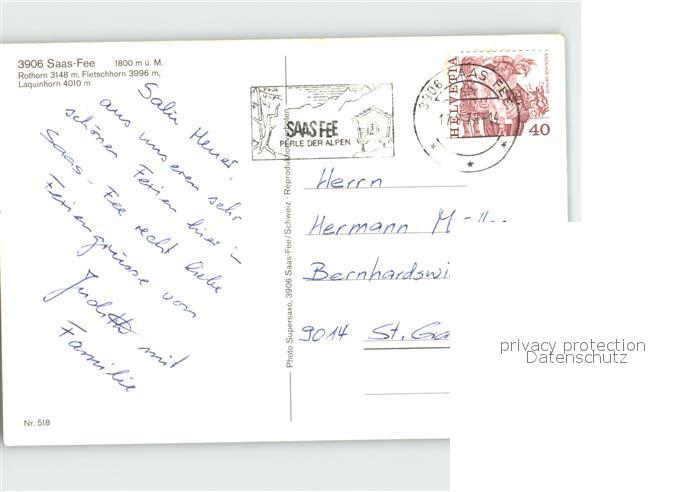 3906 Saas-Fee 1800 m ü. M.
Rothorn 3148 m, Fletschhorn 3996 m,
Laquinhorn 4010 m
Salü
aus unseren sehr
schönen Ferien hier in
Saas-Fee recht liebe
Feriengrüsse von
Judith mit
Familie
Nr. 518
Photo Supersaxo, 3906 Saas-Fee/Schweiz - Reproduktion verboten
SAAS FEE
PERLE DER ALPEN
3906 SAAS FEE
HELVETIA
40
Herrn
Hermann
Bernhardswi
9014 St. Ga
privacy protection
Datenschutz